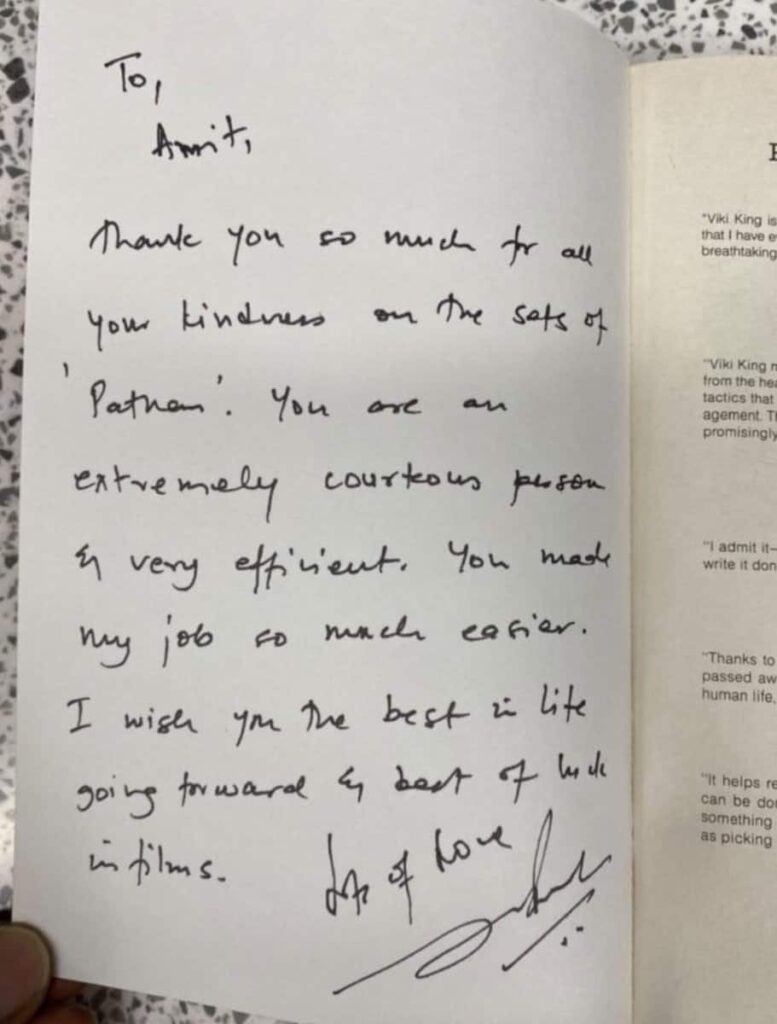 To,
Amrit,
Thank you so much for all
your kindness on the sets of
'Pathan'. You are an
extremely courteous person
& very efficient. You made
my job so much easier.
I wish you the best in life
going forward & best of luck
in films.
Lots of Love
"Viki King is
that I have e
breathtaking
"Viki King m
from the hea
tactics that
agement. Th
promisingly
"I admit it–
write it don
"Thanks to
passed aw
human life,
"It helps re
can be don
something
as picking